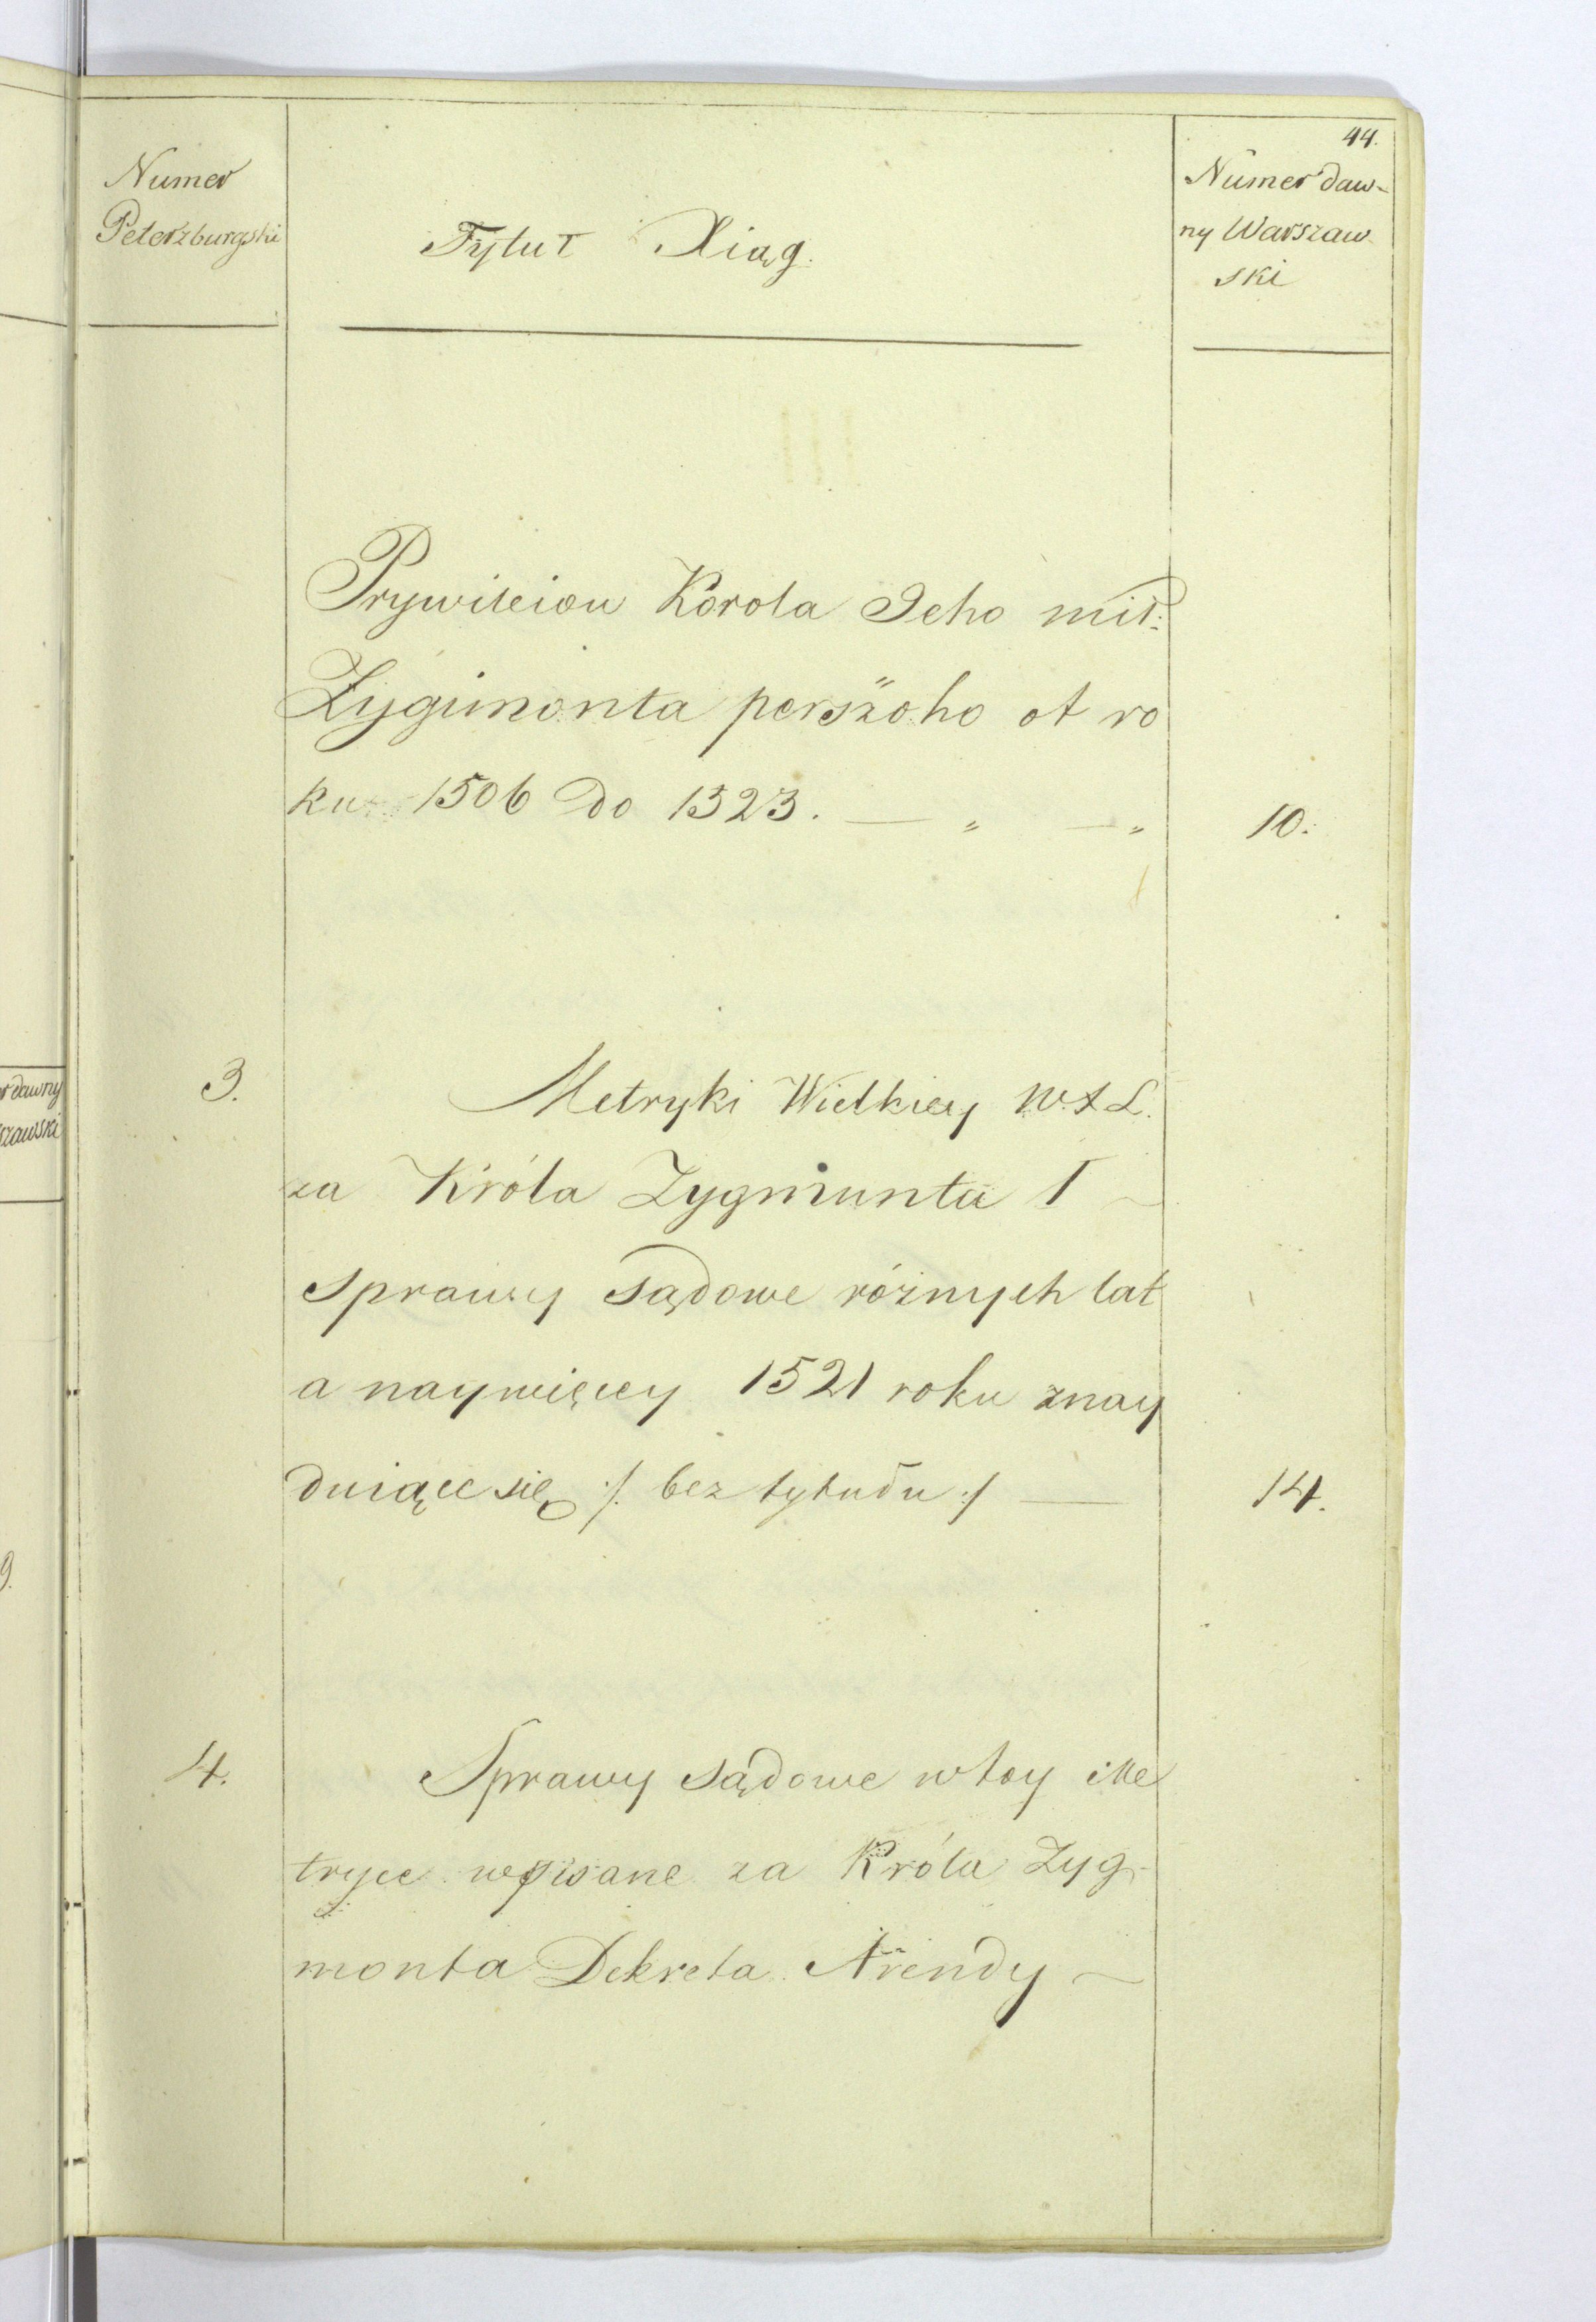 44.
Numer
Peterzburgski
Tytuł Xiąg.
Numer daw-
ny Warszaw
ski
Prywileiow Korola Jeho mił:
Zygimonta perszoho ot ro
ku 1506 do 1523. — " — "
10.
3.
Metryki Wielkiey W. X L.
za Króla Zygmunta I
sprawy sądowe różnych lat
a naywięcey 1521 roku znay
duiące się :/. bez tytułu :/ —
14.
4.
Sprawy sądowe w toy Me
tryce wpisane za Króla Zyg-
monta Dekreta Arendy —
r dawny
szawski
9.